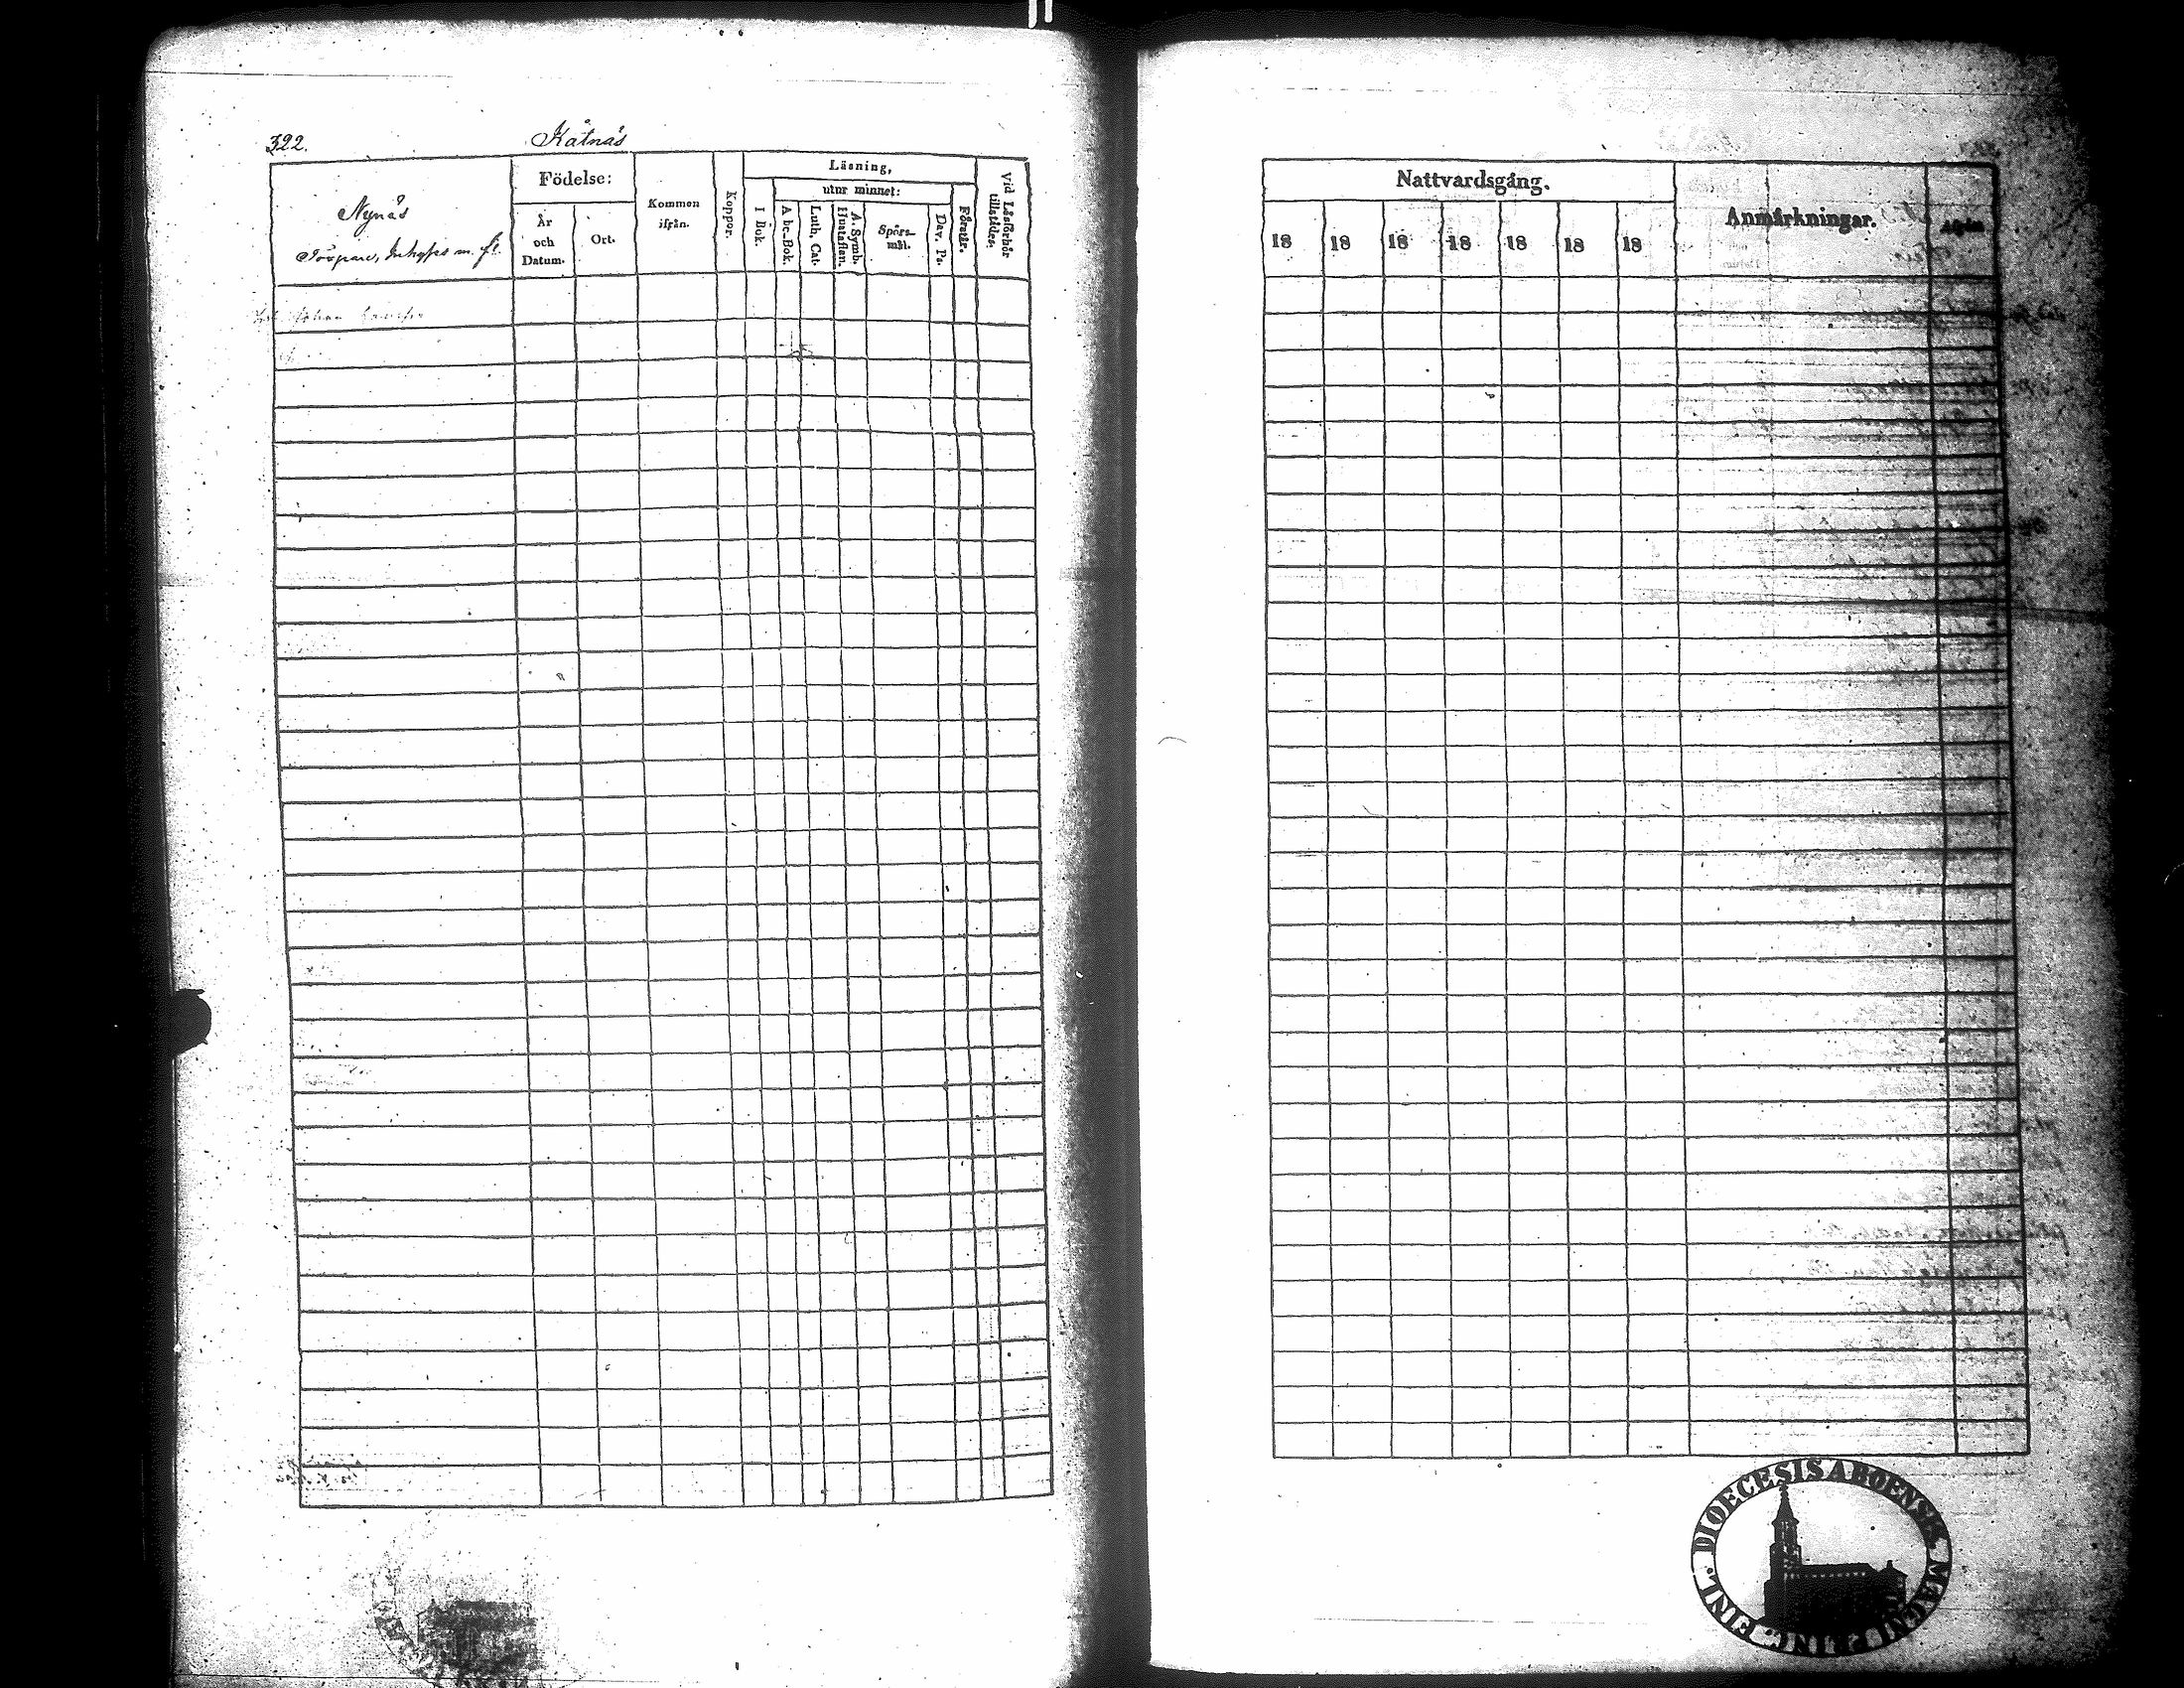 322.
Kåtnäs
Nynäs
Torpare, Inhyses m. fl.
Födelse:
År
och
Datum.
Ort.
Kommen
ifrån.
Koppor.
Läsning,
utur minnet:
I Bok.
A bc-Bok.
Luth. Cat.
A. Symb.
Hustaflan.
Spörs-
mål.
Dav. Ps.
Förstår.
Vid Läsförhör
tillstädes.
Johan
Nattvardsgång.
18 18 18 18 18 18 18
Anmärkningar.
DIOECESIS ABOENSIS MAGNI PRINC. FINL.